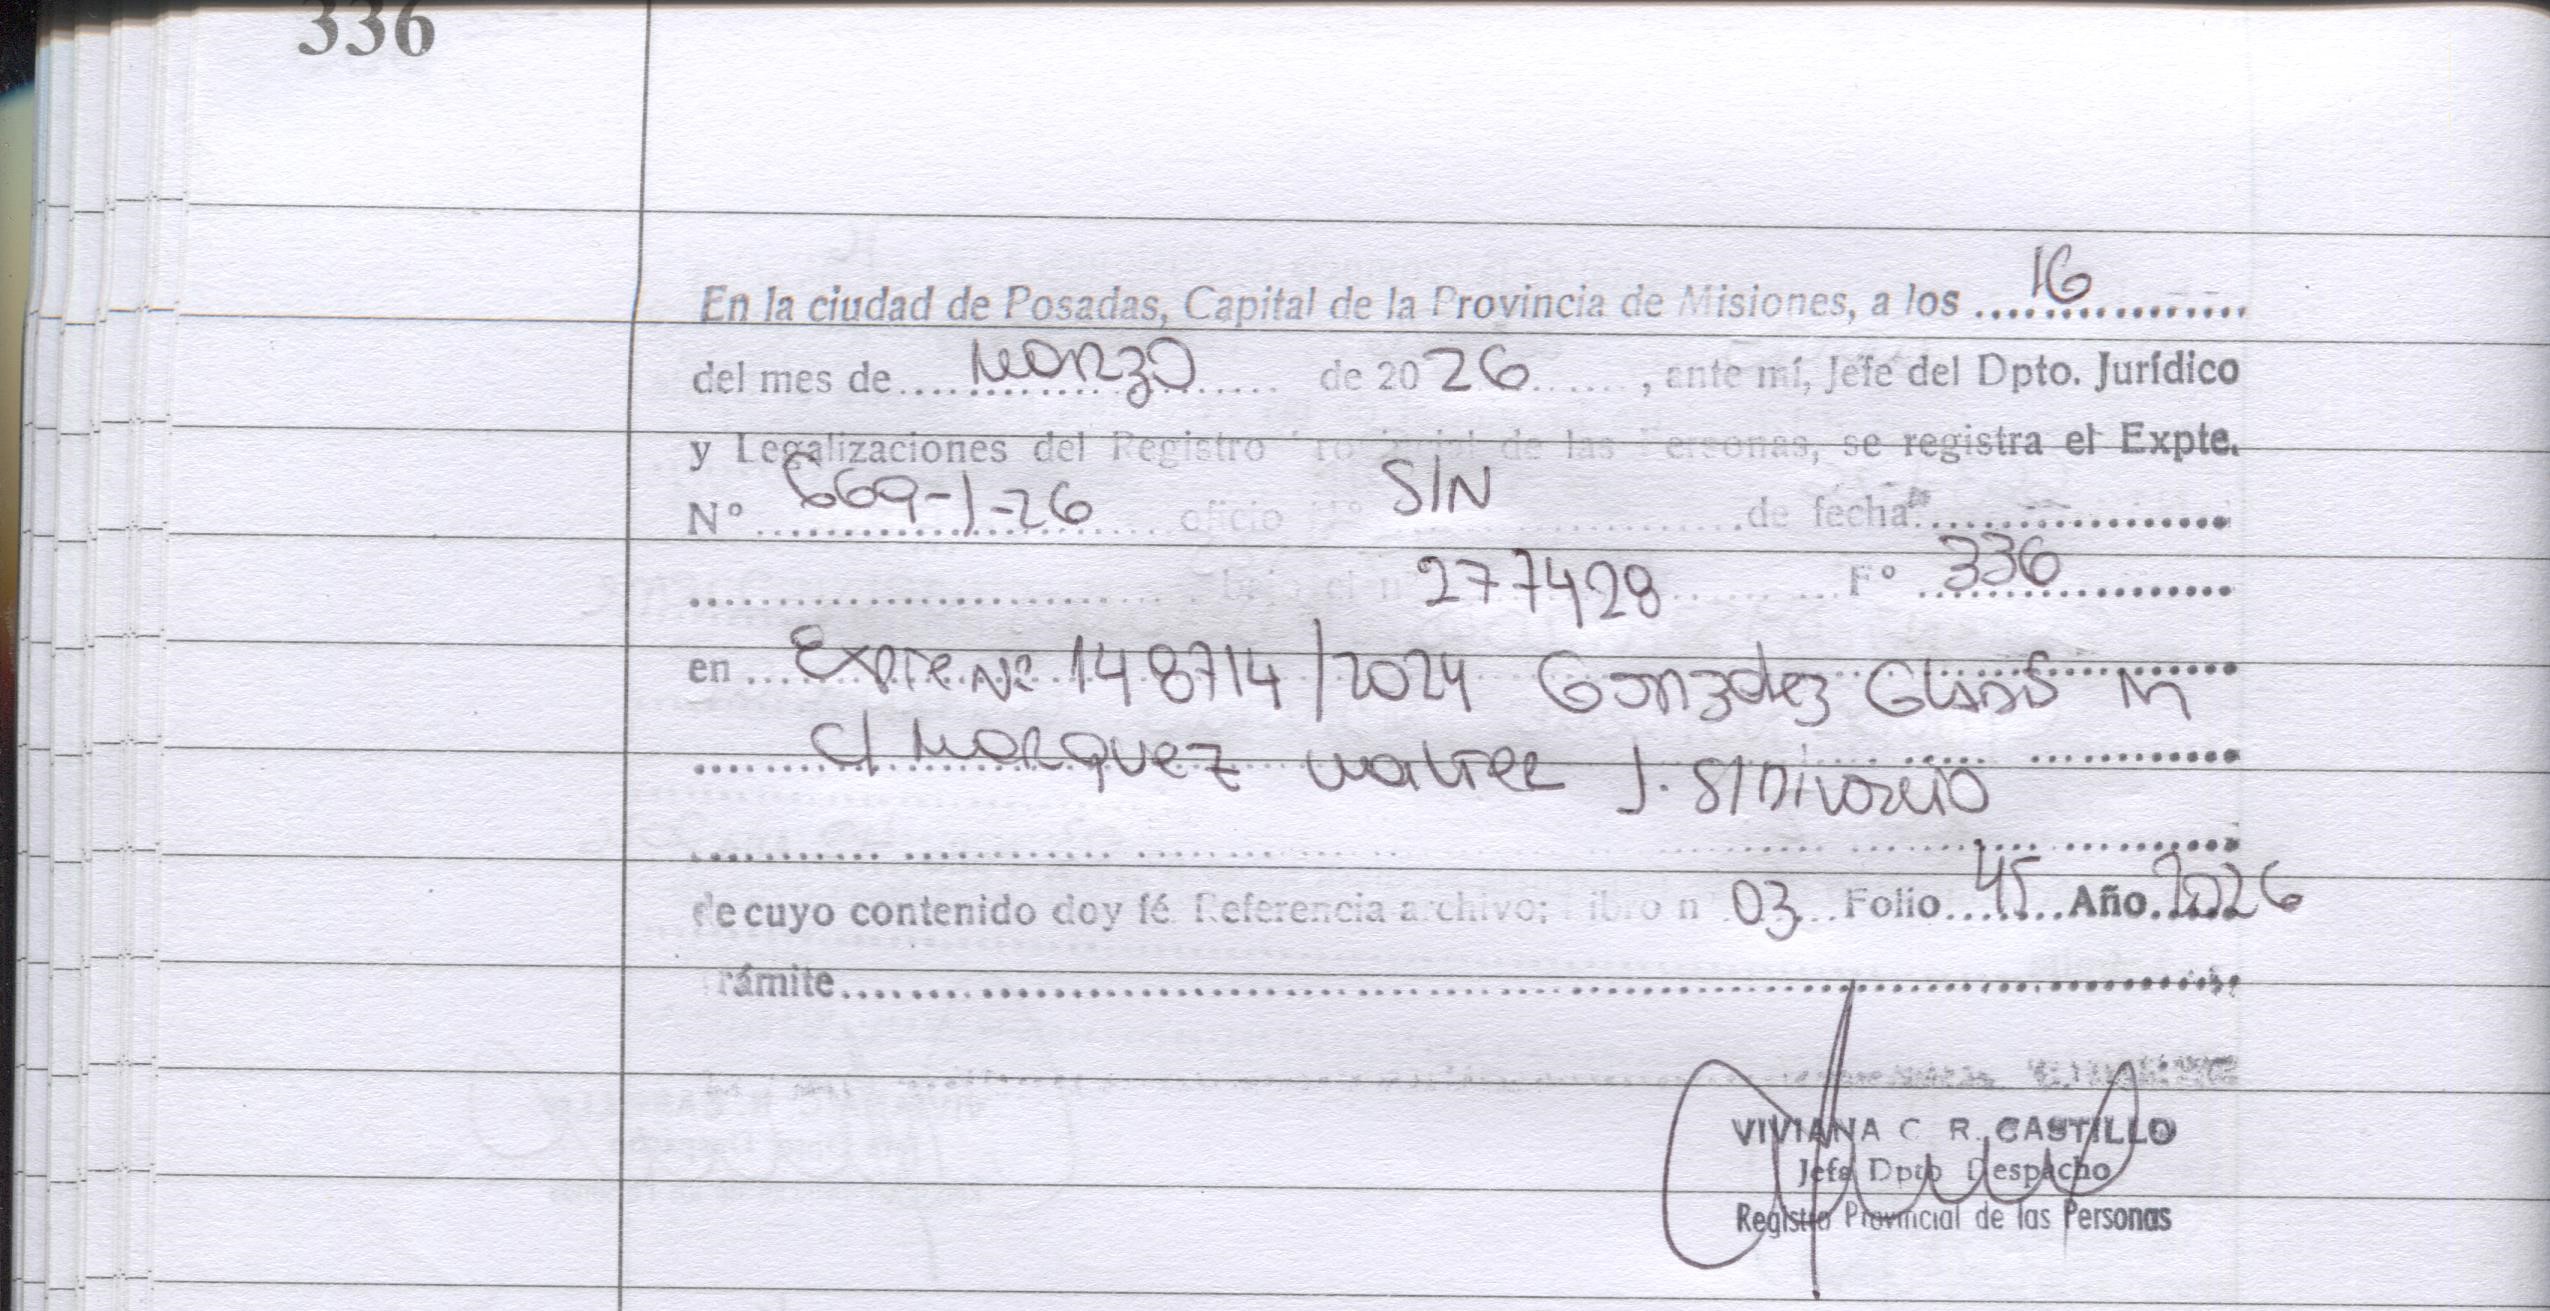 336
En la ciudad de Posadas, Capital de la Provincia de Misiones, a los 16
del mes de Marzo de 2026, ante mí, Jefe del Dpto. Jurídico
y Legalizaciones del Registro Provincial de las Personas, se registra el Expte.
N° 669-J-26 oficio N° S/N de fecha
bajo el n° 277428 F° 336
en Expte Nº 148714/2024 Gonzalez Gladis M
c/ Marquez Walter J. S/Divorcio
de cuyo contenido doy fé. Referencia archivo: Libro n° 03 Folio 45 Año 2026
Trámite
VIVIANA C. R. CASTILLO
Jefa Dpto Despacho
Registro Provincial de las Personas